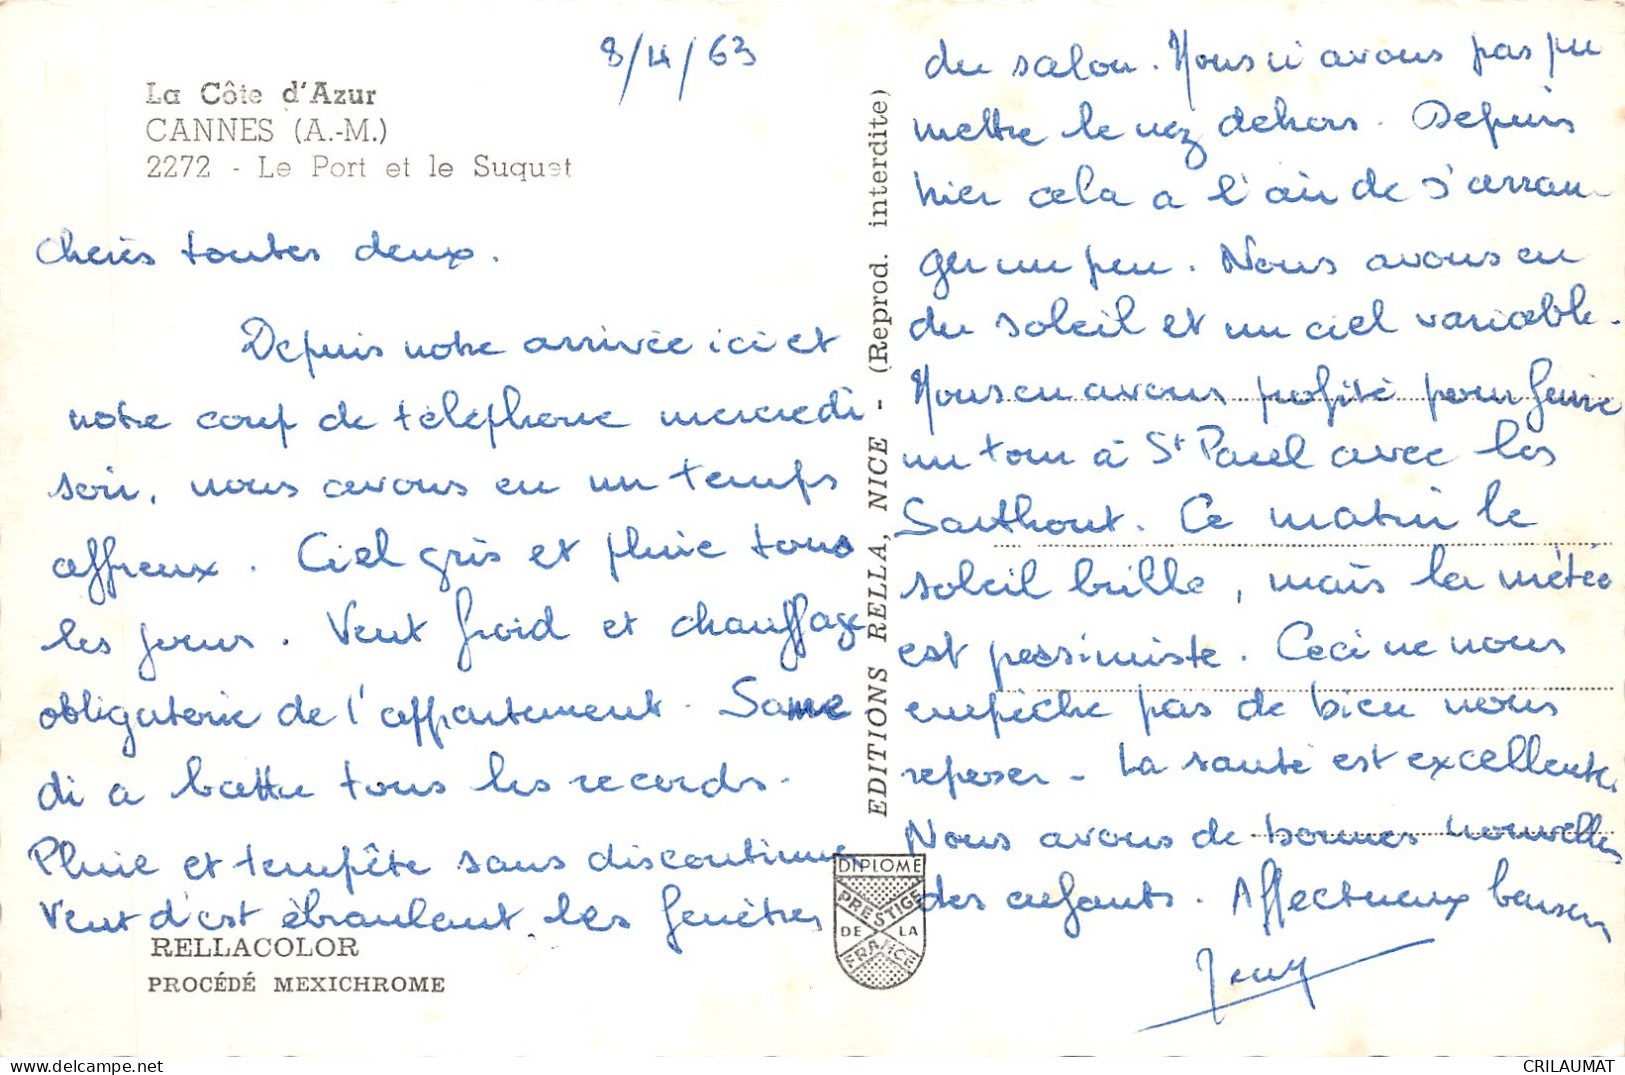 8/4/63
La Côte d'Azur
CANNES (A.-M.)
2272 - Le Port et le Suquet
Chères toutes deux.
Depuis notre arrivée ici et
notre coup de téléphone mercredi
soir, nous avons eu un temps
affreux. Ciel gris et pluie tous
les jours. Vent froid et chauffage
obligatoire de l'appartement. Same
di a battu tous les records.
Pluie et tempête sans discontinuer
Vent d'est ébranlant les fenêtres
RELLACOLOR
PROCÉDÉ MEXICHROME
EDITIONS RELLA, NICE - (Reprod. interdite)
DIPLOME
PRESTIGE
DE LA
FRANCE
du salon. Nous n'avons pas pu
mettre le nez dehors. Depuis
hier cela a l'air de s'arran
ger un peu. Nous avons eu
du soleil et un ciel variable.
Nous en avons profité pour faire
un tour à St Paul avec les
Ce matin le
soleil brille, mais la météo
est pessimiste. Ceci ne nous
empêche pas de bien nous
reposer - La santé est excellente
Nous avons de bonnes nouvelles
des enfants. Affectueux baisers